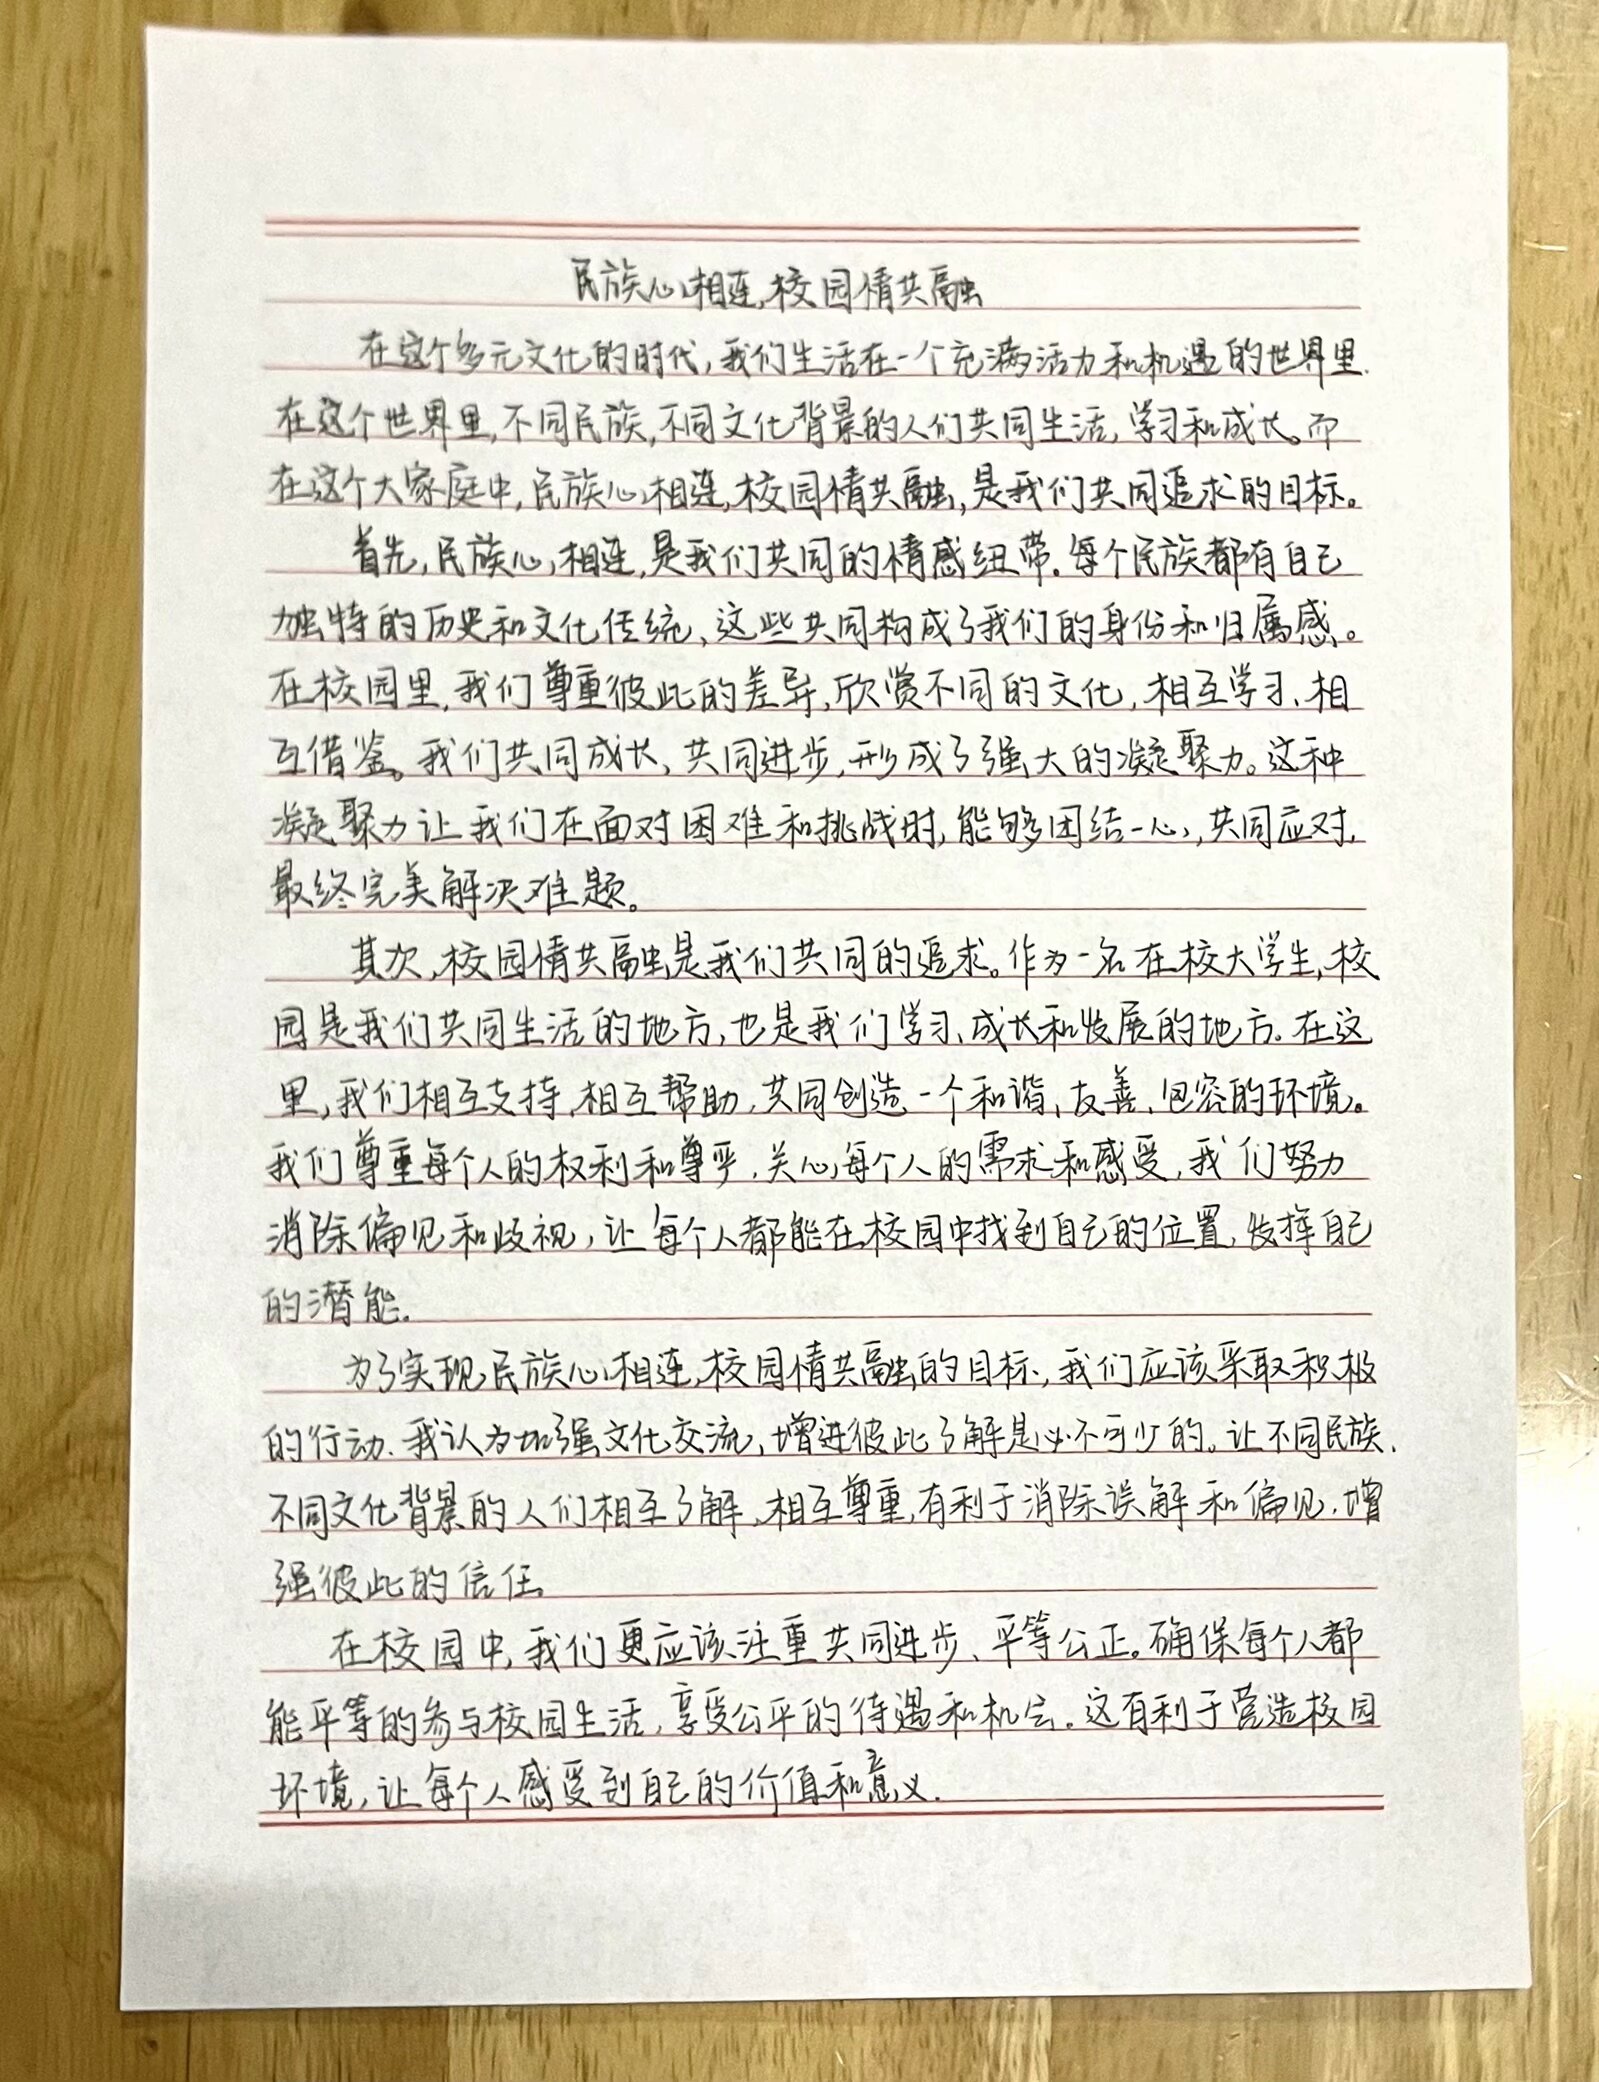 民族心相连,校园情共融
在这个多元文化的时代,我们生活在一个充满活力和机遇的世界里.
在这个世界里,不同民族,不同文化背景的人们共同生活,学习和成长。而
在这个大家庭中,民族心相连,校园情共融,是我们共同追求的目标。
首先,民族心相连,是我们共同的情感纽带.每个民族都有自己
独特的历史和文化传统、这些共同构成了我们的身份和归属感。
在校园里,我们尊重彼此的差异,欣赏不同的文化,相互学习、相
互借鉴。我们共同成长,共同进步,形成了强大的凝聚力。这种
凝聚力让我们在面对困难和挑战时,能够团结一心,共同应对,
最终完美解决难题。
其次,校园情共融是我们共同的追求。作为一名在校大学生,校
园是我们共同生活的地方,也是我们学习、成长和发展的地方.在这
里,我们相互支持,相互帮助,共同创造一个和谐、友善、包容的环境。
我们尊重每个人的权利和尊严,关心每个人的需求和感受,我们努力
消除偏见和歧视,让每个人都能在校园中找到自己的位置,发挥自己
的潜能.
为了实现民族心相连,校园情共融的目标,我们应该采取积极
的行动.我认为加强文化交流,增进彼此了解是必不可少的。让不同民族、
不同文化背景的人们相互了解,相互尊重,有利于消除误解和偏见,增
强彼此的信任.
在校园中,我们更应该注重共同进步、平等公正。确保每个人都
能平等的参与校园生活,享受公平的待遇和机会.这有利于营造校园
环境,让每个人感受到自己的价值和意义.